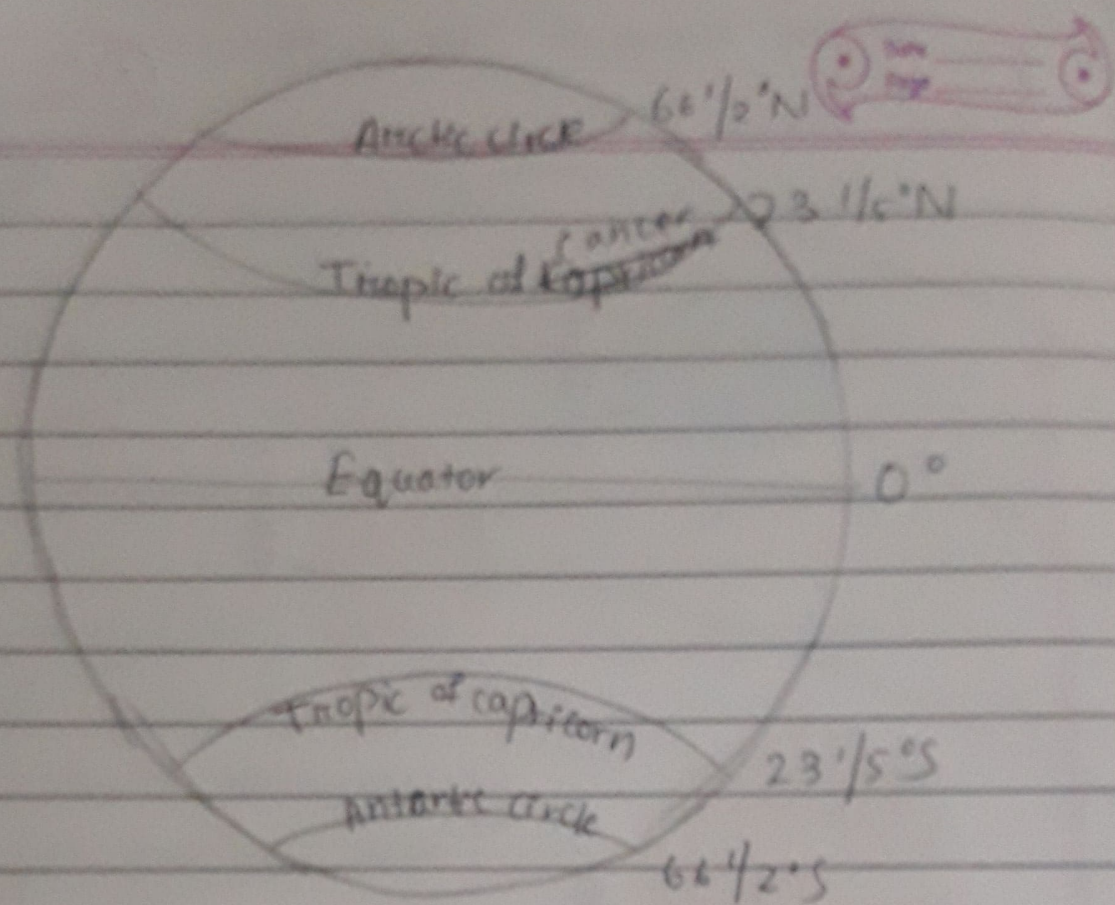 Arctic circle 66 1/2°N
23 1/5°N
Cancer
Tropic of Capricorn
Equator 0°
Tropic of capricorn
23 1/5°S
Antartic circle
66 1/2°S